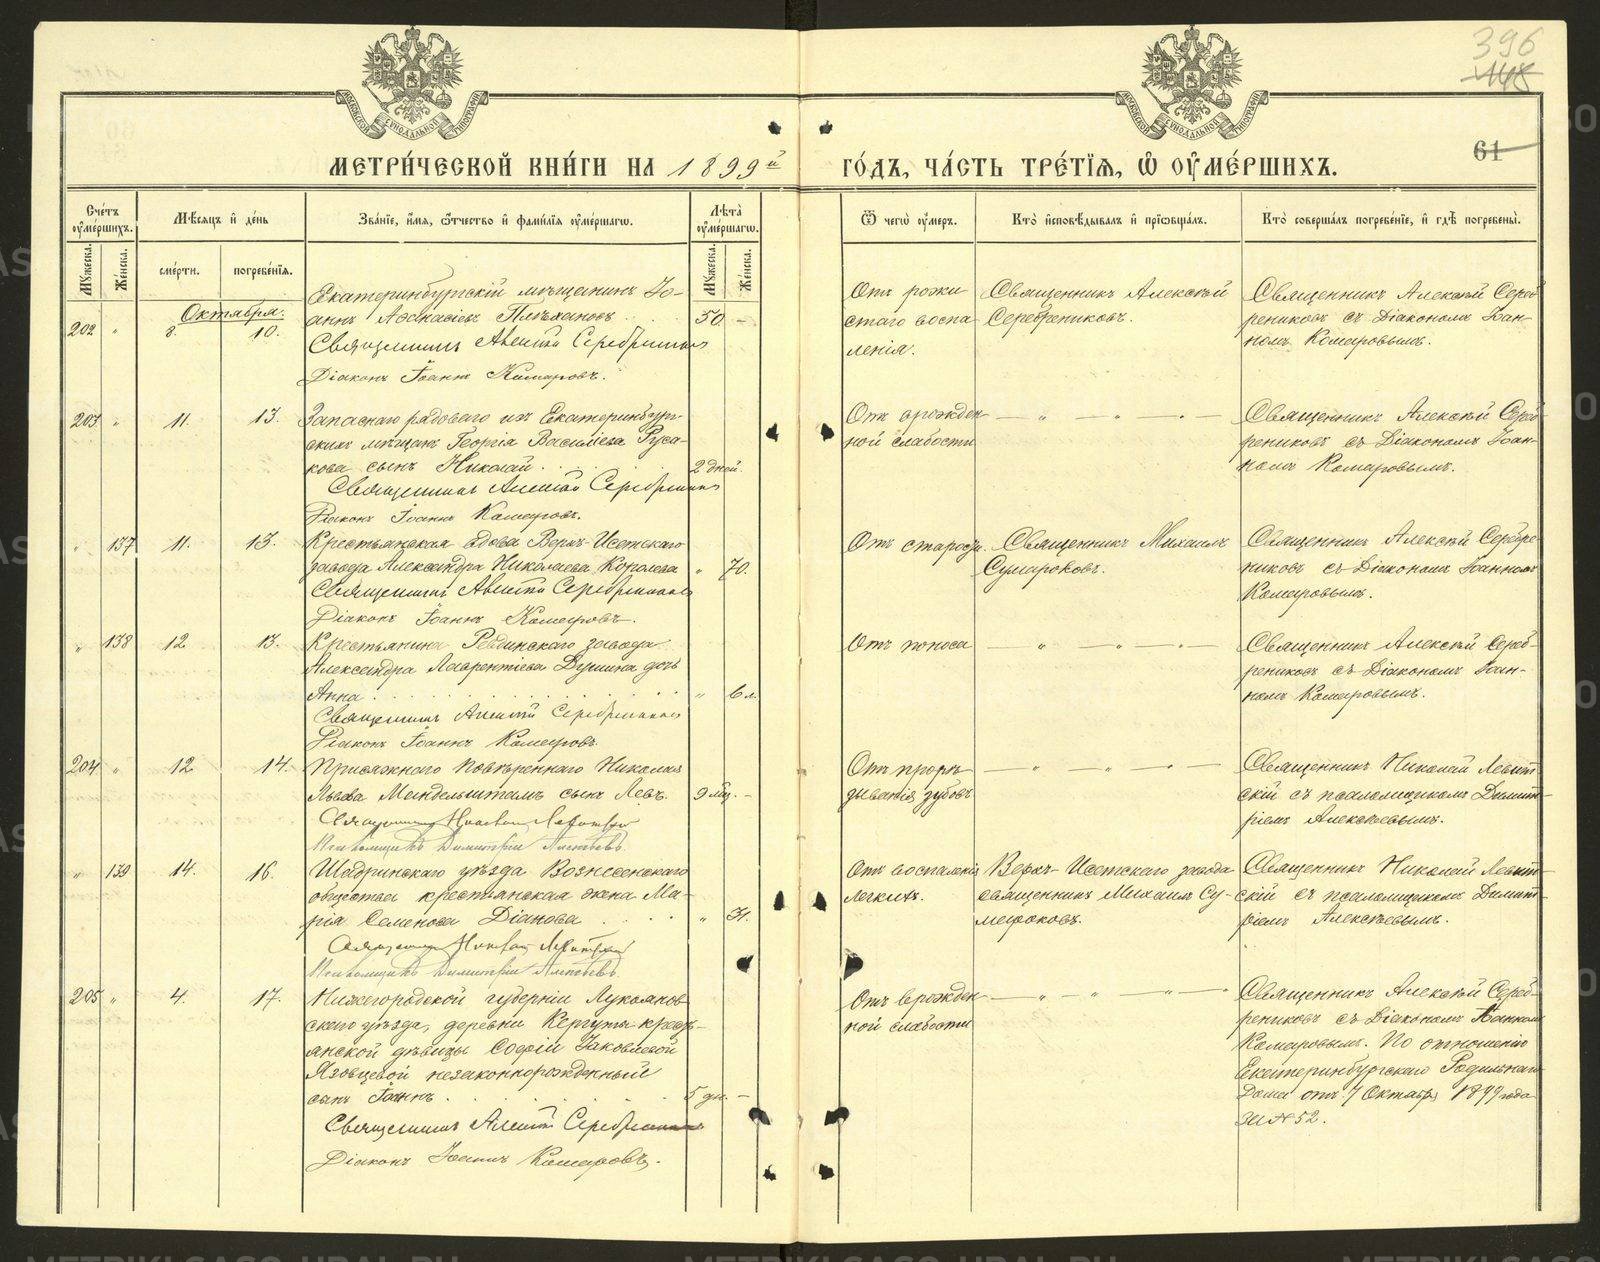 396
148
МОСКОВСКОЙ СѴНОДАЛЬНОЙ ТИПОГРАФІИ
МОСКОВСКОЙ СѴНОДАЛЬНОЙ ТИПОГРАФІИ
61
МЕТРИ́ЧЕСКОЙ КНИ́ГИ НА 1899й
ГО́ДЪ, ЧА́СТЬ ТРЕ́ТЇѦ, Ѡ҆ ОУ҆МЕ́РШИХЪ.
Сче́тъ оу҆ме́ршихъ.
Мѣ́сѧцъ и҆ де́нь
Зва́нїе, и҆́мѧ, ѻ҆́тчество и҆ фами́лїѧ оу҆ме́ршагѡ.
Лѣ́та оу҆ме́ршагѡ.
Ѿ чегѡ̀ оу҆́меръ.
Кто̀ и҆сповѣ́дывалъ и҆ прїѡбща́лъ.
Кто̀ соверша́лъ погребе́нїе, и҆ гдѣ̀ погребены̀.
Мꙋ́жеска.
Же́нска.
сме́рти.
погребе́нїѧ.
Мꙋ́жеска.
Же́нска.
Октября.
202 " 8. 10.
Екатеринбургскій мѣщанинъ Іо-
аннъ Аѳанасіевъ Плѣхановъ . . 50 -
Священникъ Алексѣй Серебрениковъ
Діаконъ Іоаннъ Комаровъ.
Отъ рожи
стаго воспа
ленія.
Священникъ Алексѣй
Серебрениковъ.
Священникъ Алексѣй Сереб
рениковъ съ Діакономъ Іоан-
номъ Комаровымъ.
203 " 11. 13.
Запаснаго рядоваго изъ Екатеринбург-
скихъ мѣщанъ Георгія Василіева Руса-
кова сынъ Николай . . . 2 дней.
Священникъ Алексѣй Серебрениковъ
Діаконъ Іоаннъ Комаровъ.
Отъ врожден
ной слабости
— " — " — " —
Священникъ Алексѣй Сереб
рениковъ съ Діакономъ Іоан-
номъ Комаровымъ.
" 137 11. 13.
Крестьянская вдова Верхъ-Исетскаго
завода Александра Николаева Королева " 70.
Священникъ Алексѣй Серебрениковъ
Діаконъ Іоаннъ Комаровъ.
Отъ старости.
Священникъ Михаилъ
Сумароковъ.
Священникъ Алексѣй Серебре
никовъ съ Діакономъ Іоанномъ
Комаровымъ.
" 138 12 13.
Крестьянина Ревдинскаго завода
Александра Лаврентіева дочь
Анна . . . . . " 6 л.
Священникъ Алексѣй Серебрениковъ
Діаконъ Іоаннъ Комаровъ.
Отъ поноса
— " — " — " —
Священникъ Алексѣй Сереб-
рениковъ съ Діакономъ Іоан-
номъ Комаровымъ.
204 " 12 14.
Присяжнаго повѣреннаго Николая
Львова Мандельштамъ сынъ Левъ. 9 мѣс. -
Священникъ Николай Левитскій
Псаломщикъ Димитрій Алексѣевъ.
Отъ прорѣ
зыванія зубовъ
— " — " — " —
Священникъ Николай Левит
скій съ псаломщикомъ Димит-
ріемъ Алексѣевымъ.
" 139 14. 16.
Шадринскаго уѣзда Вознесенскаго
общества крестьянская жена Ма-
рія Семенова Діанова . . . " 31.
Священникъ Николай Левитскій
Псаломщикъ Димитрій Алексѣевъ.
Отъ воспаленія
легкихъ.
Верхъ-Исетскаго завода
священникъ Михаилъ Су-
мароковъ.
Священникъ Николай Левит
скій съ псаломщикомъ Димит-
ріемъ Алексѣевымъ.
205 " 4. 17.
Нижегородской губерніи Лукоянов
скаго уѣзда, деревни Кергуты кресть-
янской дѣвицы Софіи Іаковлевой
Язовцевой незаконнорожденный
сынъ Іоаннъ . . . . 5 дн. -
Священникъ Алексѣй Серебрениковъ
Діаконъ Іоаннъ Комаровъ.
Отъ врожден
ной слабости
— " — " — " —
Священникъ Алексѣй Сереб-
рениковъ съ Діакономъ Іоанномъ
Комаровымъ. По отношенію
Екатеринбургскаго Родильнаго
Дома отъ 7 Октября 1899 года
за № 52.
METRIKI.GASO-URAL.RU
METRIKI.GASO-URAL.RU
METRIKI.GASO